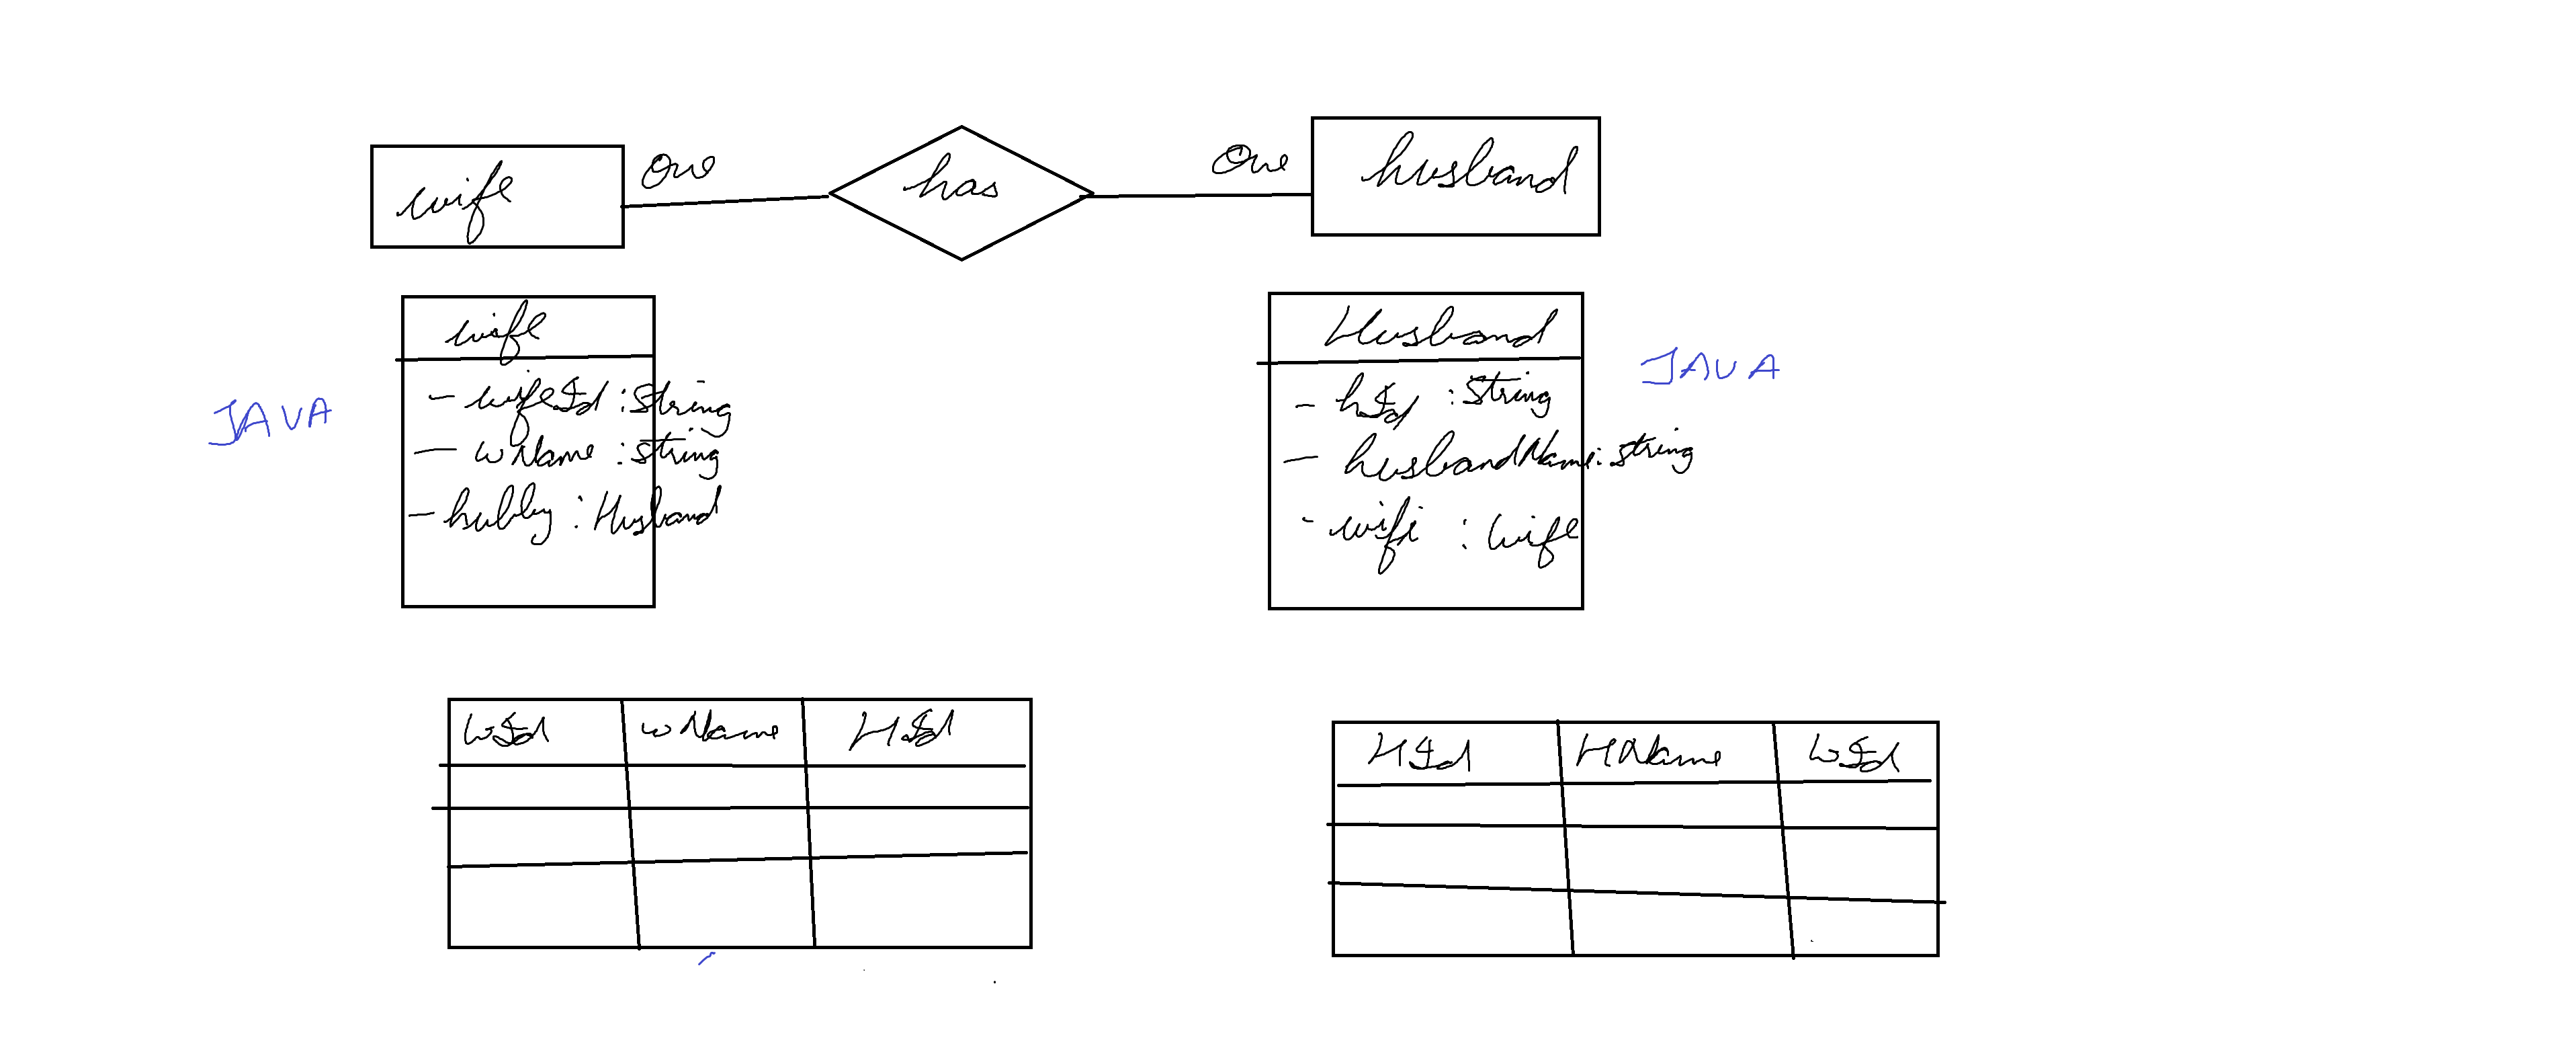 wife One has One husband
wife
- wifeId : String
- wName : string
- hubby : Husband
JAVA
Husband
- hId : String
- husbandName : string
- wife : Wife
JAVA
WId wName HId
HId HName WId